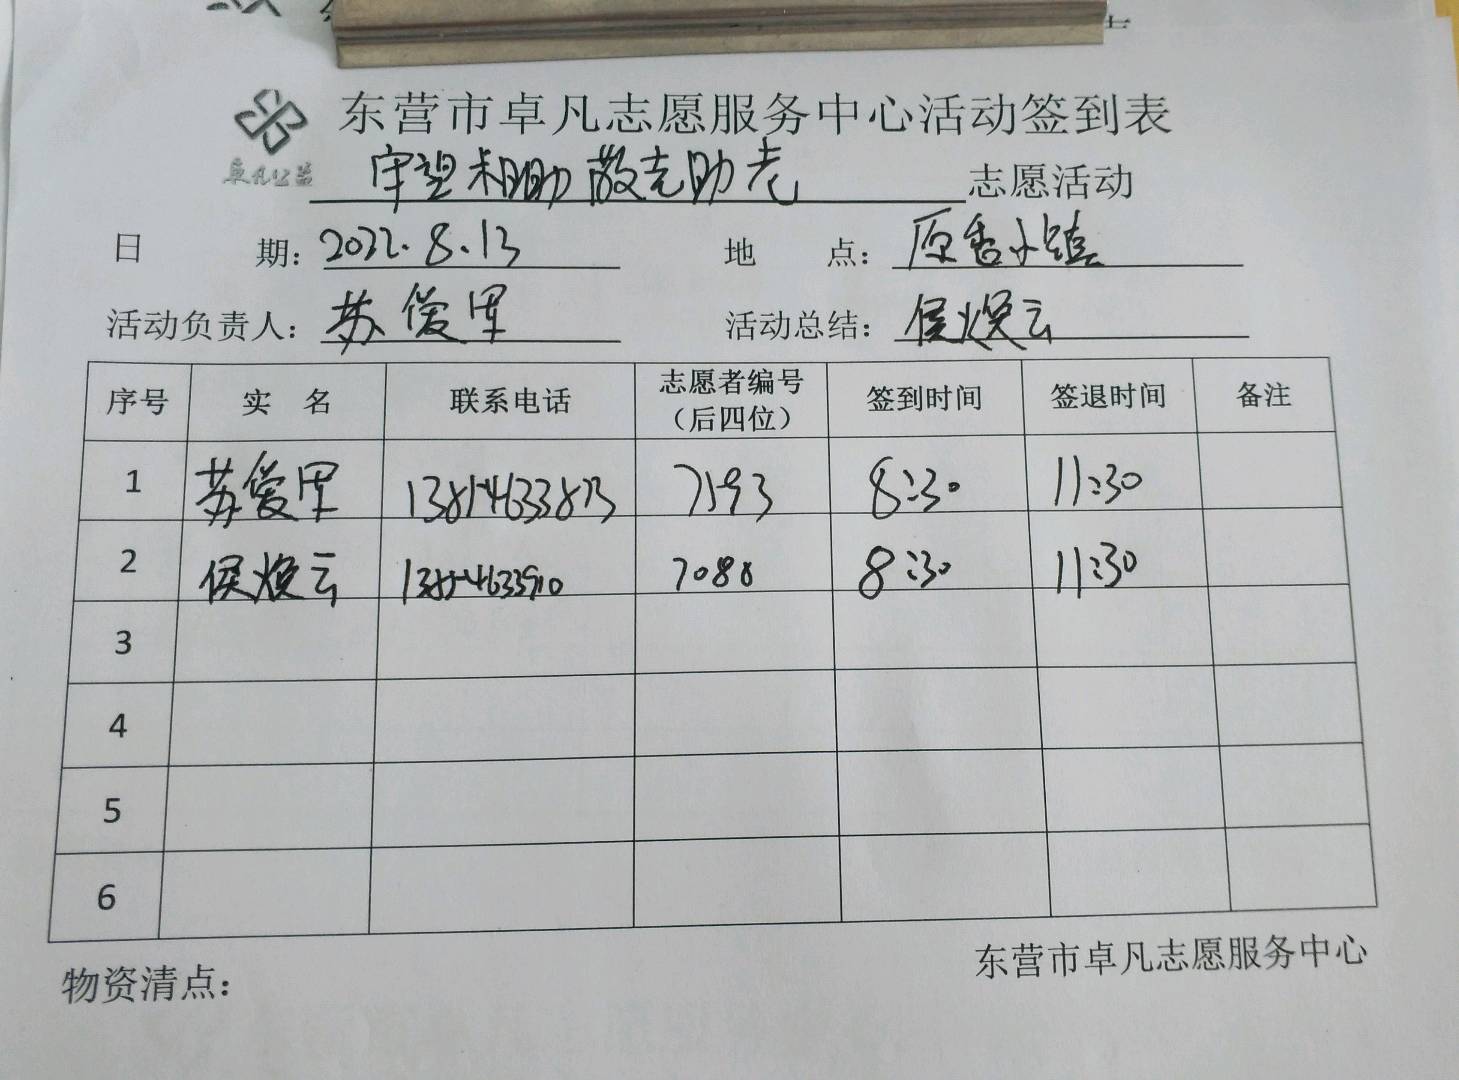 东营市卓凡志愿服务中心活动签到表
卓凡公益
守望相助 敬老助老 志愿活动
日期：2022.8.13 地点：原香小镇
活动负责人：苏爱军 活动总结：侯焕云
序号 实名 联系电话 志愿者编号（后四位） 签到时间 签退时间 备注
1 苏爱军 7193 8:30 11:30
2 侯焕云 7088 8:30 11:30
3
4
5
6
东营市卓凡志愿服务中心
物资清点：